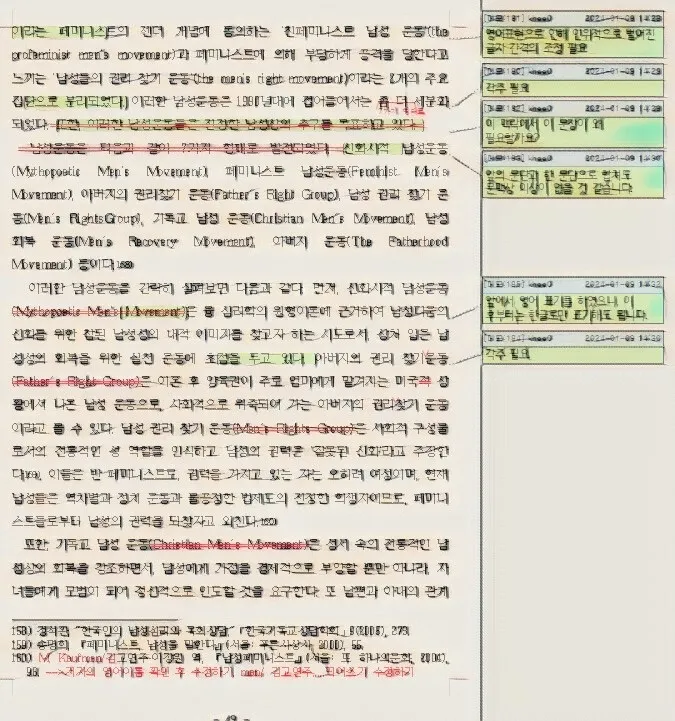 이라는 페미니스트의 젠더 개념에 동의하는 '친페미니스트 남성 운동'(the
profeminist men's movement)과 페미니스트에 의해 부당하게 공격을 당한다고
느끼는 '남성들의 권리 찾기 운동'(the men's right movement)이라는 2개의 주요
집단으로 분리되었다. 이러한 남성운동은 1990년대에 접어들어서는 좀 더 세분화
되었다. 또한 이러한 남성운동들은 진정한 남성상의 추구를 목표하고 있다.
남성운동은 다음과 같이 가지 형태로 발전되었다. 신화시적 남성운동
(Mythopoetic Men's Movement), 페미니스트 남성운동(Feminist Men's
Movement), 아버지의 권리찾기 운동(Father's Right Group), 남성 권리 찾기 운
동(Men's Rights Group), 기독교 남성 운동(Christian Men's Movement), 남성
회복 운동(Men's Recovery Movement), 아버지 운동(The Fatherhood
Movement) 등이다.
이러한 남성운동을 간략히 살펴보면 다음과 같다. 먼저, 신화시적 남성운동
(Mythopoetic Men's Movement)은 융 심리학의 원형이론에 근거하여 남성다움의
신화를 위한 참된 남성성의 내적 이미지를 찾고자 하는 시도로서, 상처 입은 남
성성의 회복을 위한 실천 운동에 초점을 두고 있다. 아버지의 권리 찾기운동
(Father's Right Group)은 이혼 후 양육권이 주로 엄마에게 맡겨지는 미국적 상
황에서 나온 남성 운동으로, 사회적으로 위축되어 가는 아버지의 권리찾기 운동
이라고 볼 수 있다. 남성 권리 찾기 운동(Men's Rights Group)은 사회적 구성물
로서의 전통적인 성 역할을 인식하고 남성의 권력은 '잘못된 신화'라고 주장한
다. 이들은 반-페미니스트로, 권력을 가지고 있는 자는 오히려 여성이며, 현재
남성들은 역차별과 정치 운동과 불공정한 법제도의 진정한 희생자이므로, 페미니
스트들로부터 남성의 권력을 되찾자고 외친다.
또한, 기독교 남성 운동(Christian Men's Movement)은 성서 속의 전통적인 남
성상의 회복을 강조하면서, 남성에게 가정을 경제적으로 부양할 뿐만 아니라, 자
녀들에게 모범이 되어 정신적으로 인도할 것을 요구한다. 또 남편과 아내의 관계
"한국인의 남성심리와 목회상담," 『한국기독교상담학회』
『페미니스트, 남성을 말한다』 (서울: 푸른사상사, 2000),
M. Kaufman/김고연주·이장원 역, 『남성페미니스트』 (서울: 또 하나의문화, 2004),
- 49 -
영어표현으로 인해 인위적으로 벌어진
글자 간격의 조정 필요
각주 필요
이 맥락에서 이 문장이 왜
필요할까요?
앞의 문단과 한 문단으로 합쳐도
문맥상 이상이 없을 것 같습니다.
앞에서 영어 표기를 하였으니, 이
후부터는 한글로만 표기해도 됩니다.
각주 필요